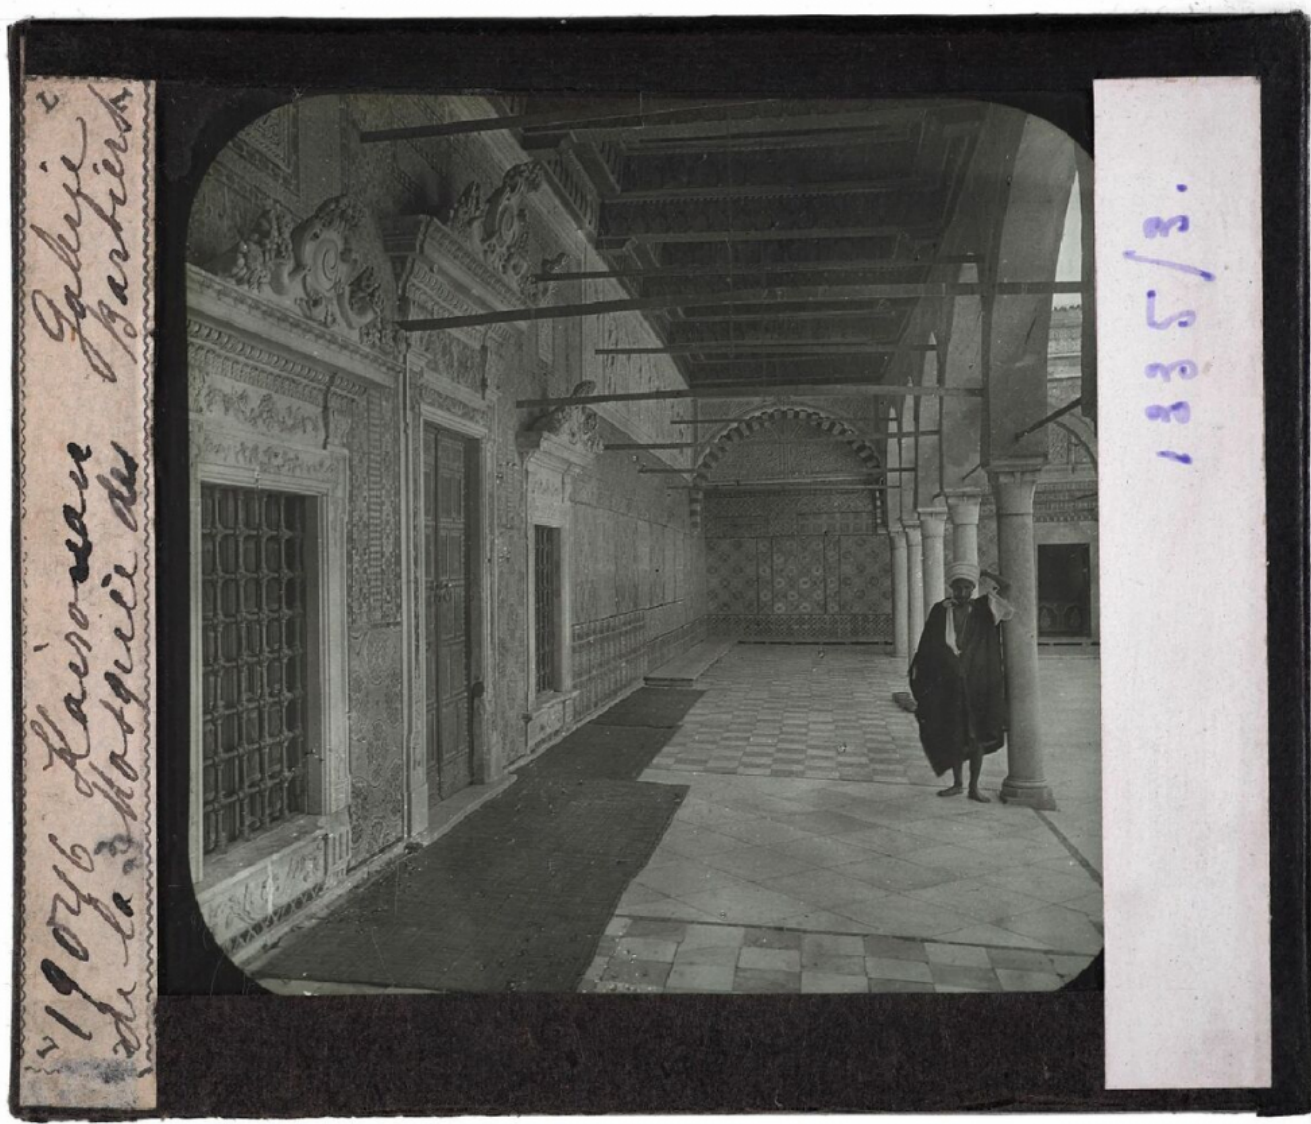 19046 Kairouan Galerie
de la Mosquée du Barbier
1335/3.